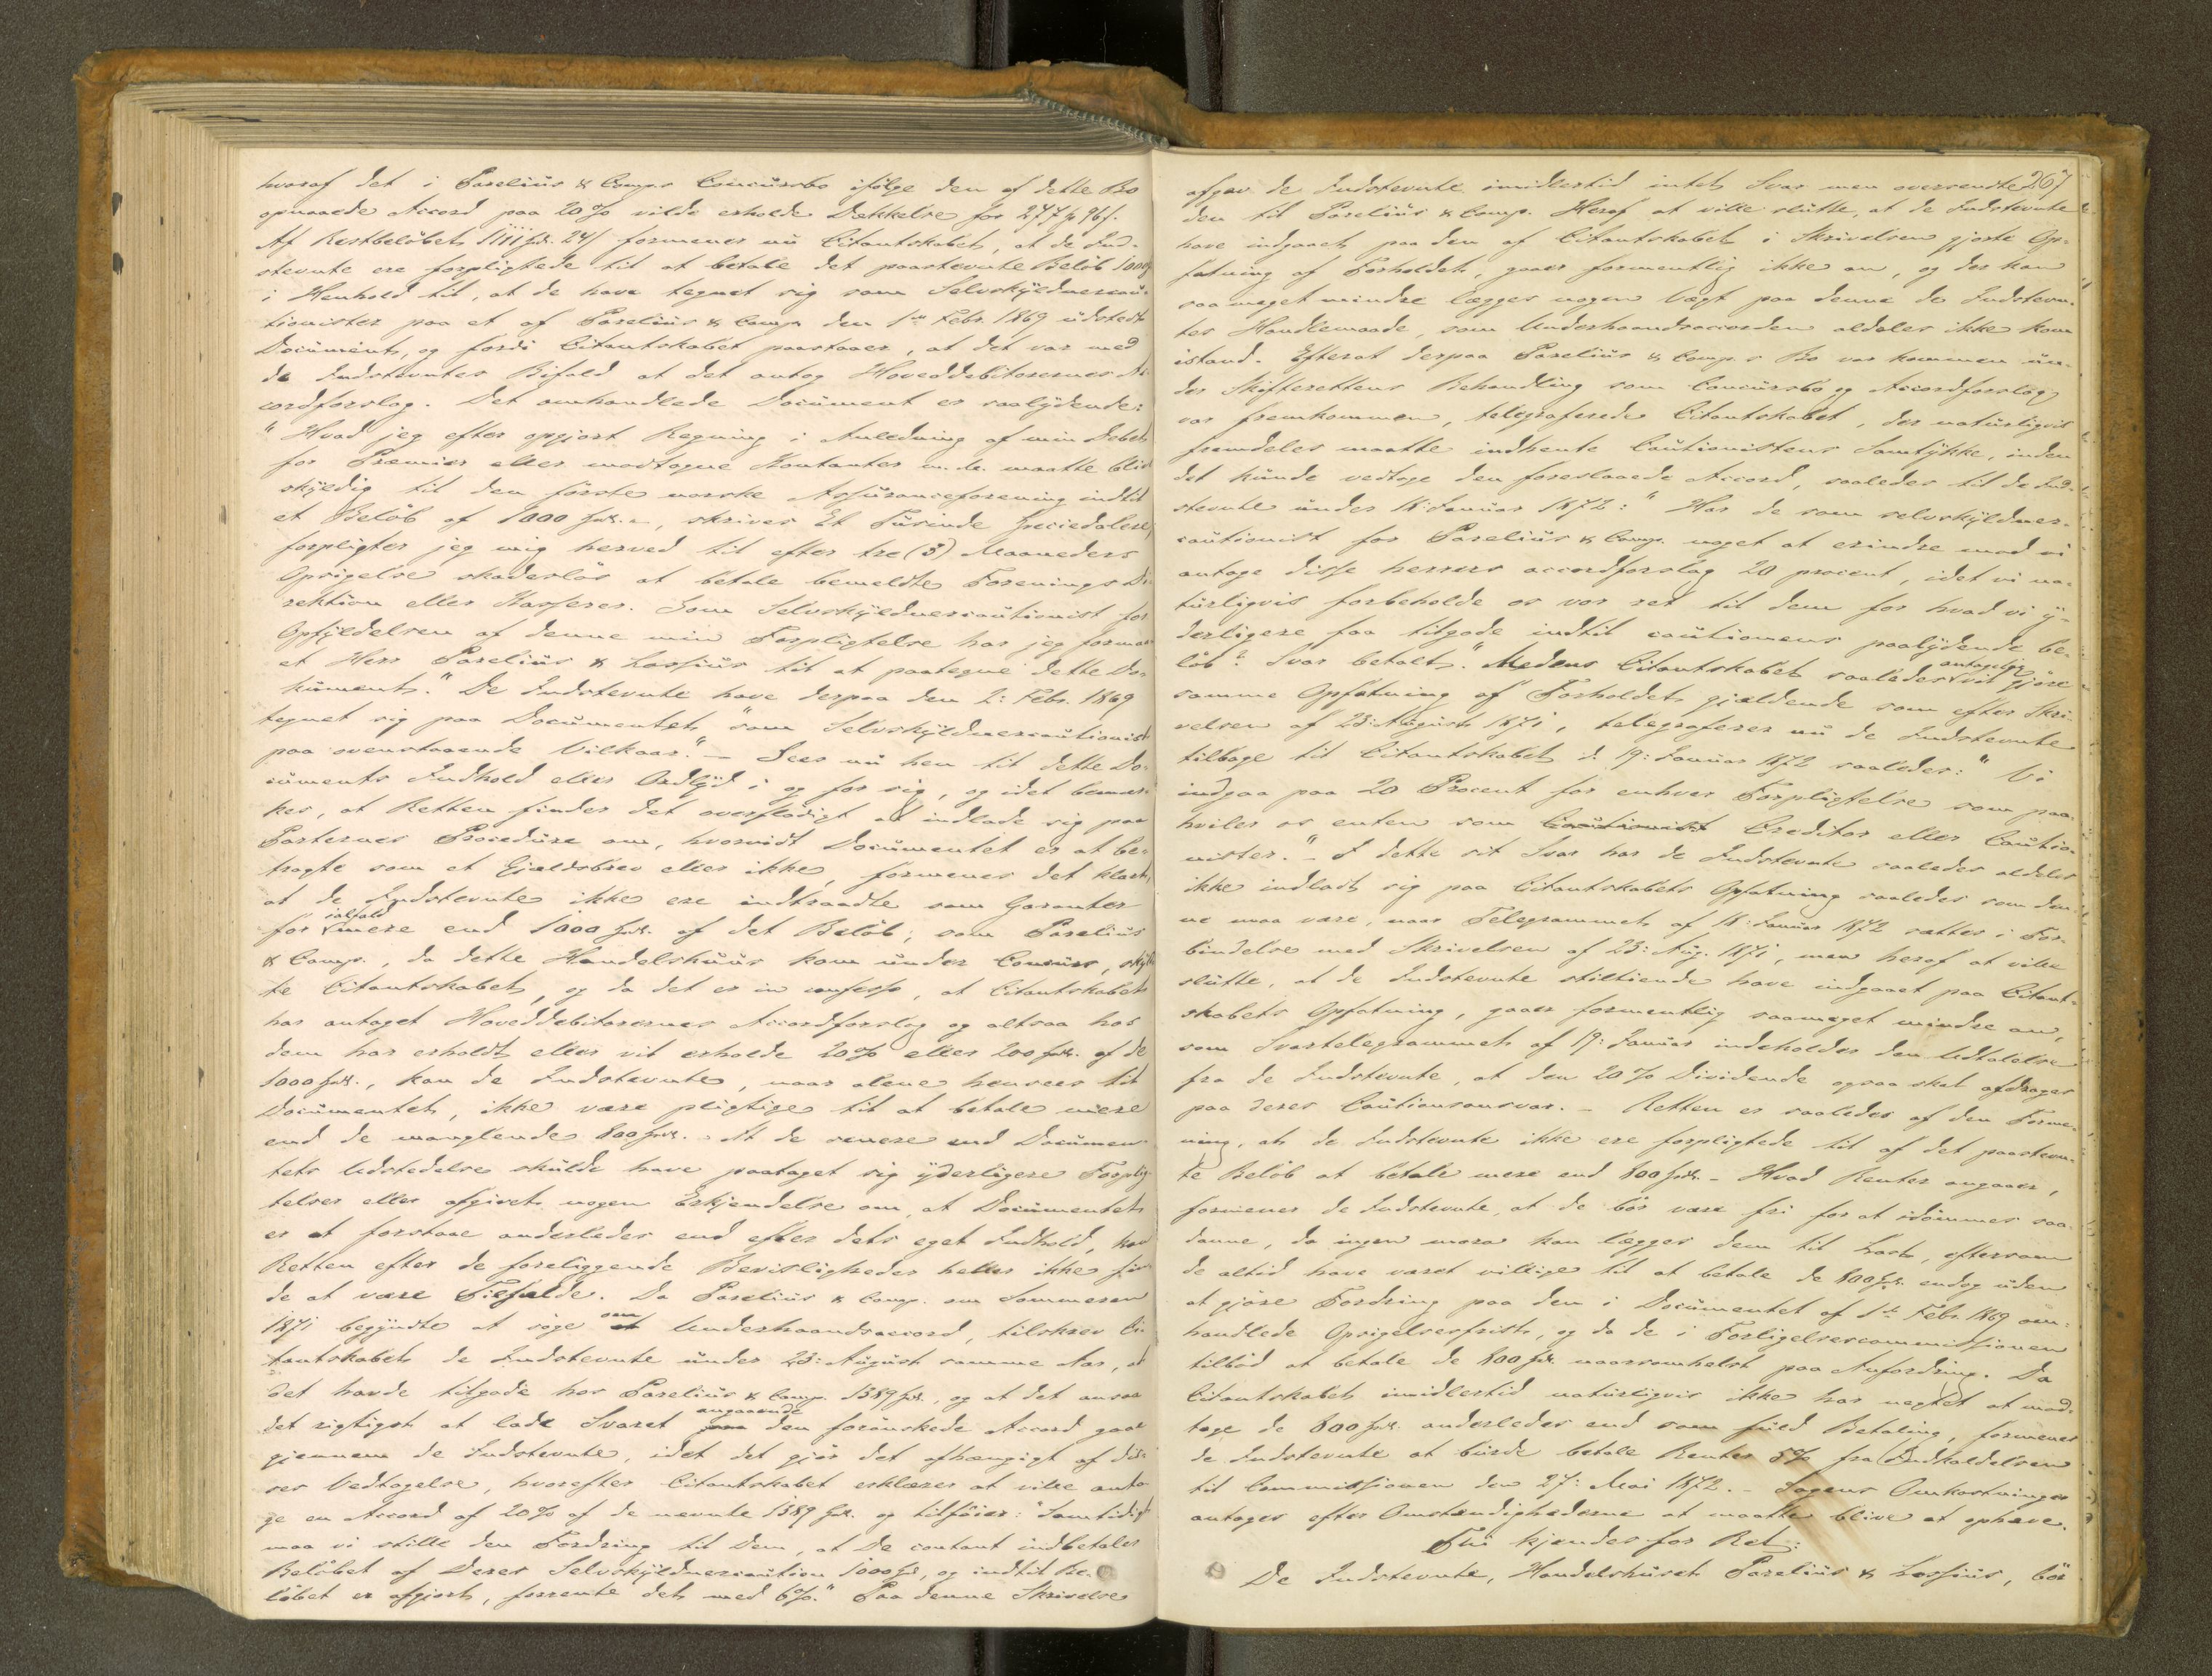 hvoraf det i Parelius & Comp.s Concursbo ifølge den af dette Bo
opnaaede Accord paa 20% vilde erholde Dækkelse for 277 96/.
Af Restbeløbet 1111 Spd. 24/ formener nu Citantskabet, at de Ind-
stevnte ere forpligtede til at betale det paastevnte Beløb 1000
i Henhold til, at de have tegnet sig som Selvskyldnercau-
tionister paa et af Parelius & Comp. den 1ste Febr. 1869 udstedt
Document, og fordi Citantskabet paastaaer, at det var med
de Indstevntes Bifald at det antog Hoveddebitorernes Ac-
cordforslag. Det omhandlede Document er saalydende:
"Hvad jeg efter opgjort Regning i Anledning af min Debet
for Præmier eller modtagne Kontanter m.v. maatte blive
skyldig til den første norske Assuranceforening indtil
et Beløb af 1000 Spd., skriver Et Tusinde Speciedaler,
forpligter jeg mig herved til efter tre (3) Maaneders
Opsigelse skadesløs at betale bemeldte Forenings Di-
rektion eller Kasserer. Som Selvskyldnercautionist for
Opfyldelsen af denne min Forpligtelse har jeg formaa-
et Herr Parelius & Lossius til at paategne dette Do-
kument." De Indstevnte have derpaa den 2: Febr. 1869
tegnet sig paa Documentet "som Selvskyldnercautionist
paa ovenstaaende Vilkaar." – Sees nu hen til dette Do-
cuments Indhold eller Ordlyd i og for sig, og idet bemær-
kes, at Retten finder det overflødigt at indlade sig paa
Parternes Procedure om, hvorvidt Documentet er at be-
tragte som et Gjældsbrev eller ikke, formenes det klart,
at de Indstevnte ikke ere indtraadte som Garanter
for ialfald mere end 1000 Spd. af det Beløb, som Parelius
& Comp., da dette Handelshuus kom under Concurs, skyld-
te Citantskabet, og da det er in confesso, at Citantskabet
har antaget Hoveddebitorernes Accordforslag og altsaa hos
dem har erholdt eller vil erholde 20% eller 200 Spd. af de
1000 Spd., kan de Indstevnte, naar alene hensees til
Documentet, ikke være pligtige til at betale mere
end de manglende 800 Spd. – At de senere end Documen-
tets Udstedelse skulde have paataget sig yderligere Forplig-
telser eller afgivet nogen Erkjendelse om, at Documentet
er at forstaae anderledes end efter dets eget Indhold, kan
Retten efter de foreliggende Bevisligheder heller ikke fin-
de at være Tilfælde. Da Parelius & Comp. om Sommeren
1871 begyndte at søge om Underhaandsaccord, tilskrev Ci-
tantskabet de Indstevnte under 23: August samme Aar, at
det havde tilgode hos Parelius & Comp. 1389 Spd., og at det ansaa
det rigtigst at lade Svaret angaaende den forønskede Accord gaae
gjennem de Indstevnte, idet det gjør det afhængigt af dis-
ses Vedtagelse, hvorefter Citantskabet erklærer at ville anta-
ge en Accord af 20% af de nævnte 1389 Spd. og tilføier: "Samtidigt
maa vi stille den Fordring til Dem, at De contant indbetaler
Beløbet af Deres Selvskyldnercaution 1000 Spd., og indtil Be-
løbet er afgjort, forrente det med 6%." Paa denne Skrivelse
267
afgav de Indstevnte imidlertid intet Svar men oversendte
den til Parelius & Comp. Heraf at ville slutte, at de Indstevnte
have indgaaet paa den af Citantskabet i Skrivelsen gjorte Op-
fatning af Forholdet, gaaer formentlig ikke an, og der kan
saa meget mindre lægges nogen Vægt paa denne de Indstevn-
tes Handlemaade, som Underhaandsaccorden aldeles ikke kom
istand. Efterat derpaa Parelius & Comp.s Bo var kommen un-
der Skifterettens Behandling som Concursbo og Accordforslag
var fremkommen, telegraferede Citantskabet, der naturligvis
fremdeles maatte indhente Cautionistens Samtykke, inden
det kunde vedtage den foreslaaede Accord, saaledes til de Ind-
stevnte under 18: Januar 1872: "Har de som selvskyldner-
cautionist for Parelius & Comp. noget at erindre mod vi
antage disse herrers accordforslag 20 procent, idet vi na-
turligvis forbeholde os vor ret til dem for hvad vi y-
derligere faa tilgode indtil cautionens paalydende be-
løb? Svar betalt." Medens Citantskabet saaledes antagelig vil gjøre
samme Opfatning af Forholdet gjældende som efter Skri-
velsen af 23: August 1871, telegraferer nu de Indstevnte
tilbage til Citantskabet d. 19: Januar 1872 saaledes: "Vi
indgaa paa 20 Procent for enhver Forpligtelse som paa-
hviler os enten som Creditor eller Cautio-
nister." – I dette sit Svar har de Indstevnte saaledes aldeles
ikke indladt sig paa Citantskabets Opfatning saaledes som den-
ne maa være, naar Telegrammet af 18: Januar 1872 sættes i For-
bindelse med Skrivelsen af 23: Aug. 1871, men heraf at ville
slutte, at de Indstevnte stiltiende have indgaaet paa Citant-
skabets Opfatning, gaaer formentlig saameget mindre an,
som Svartelegrammet af 19: Januar indeholder den Udtalelse
fra de Indstevnte, at den 20% Dividende ogsaa skal afdrages
paa deres Cautionsansvar. – Retten er saaledes af den Forme-
ning, at de Indstevnte ikke ere forpligtede til af det paastevn-
te Beløb at betale mere end 800 Spd. – Hvad Renter angaaer,
formener de Indstevnte, at de bør være fri for at idømmes saa-
danne, da ingen mora kan lægges dem til Last, eftersom
de altid have været villige til at betale de 800 Spd. endog uden
at gjøre Fordring paa den i Documentet af 1ste Febr. 1869 om-
handlede Opsigelsesfrist, og da de i Forligelsescommissionen
tilbød at betale de 800 Spd. naarsomhelst paa Anfordring. Da
Citantskabet imidlertid naturligvis ikke har negtet at mod-
tage de 800 Spd. anderledes end som fuld Betaling, formenes
de Indstevnte at burde betale Renter 5% fra Indkaldelsen
til Commissionen den 27: Mai 1872. – Sagens Omkostninger
antages efter Omstændighederne at maatte blive at ophæve.
Thi kjendes for Ret:
De Indstevnte, Handelshuset Parelius & Lossius, bør